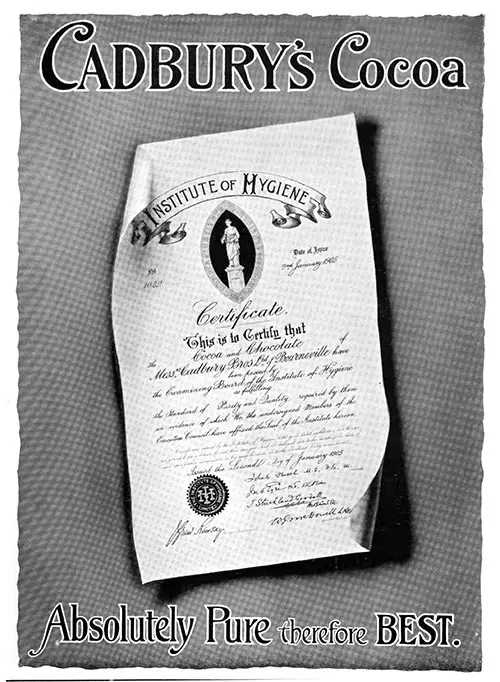 CADBURY'S Cocoa
INSTITUTE OF HYGIENE
Date of Issue
2nd January 1905
No
1029
Certificate.
This is to Certify that
Cocoa and Chocolate
of
the Messrs Cadbury Bros. Ltd. of Bourneville have
been passed by
the Examining Board of the Institute of Hygiene
as fulfilling
the Standard of Purity and Quality required by them
in evidence of which We the undersigned Members of the
Executive Council have affixed the Seal of the Institute hereon.
Issued the Second day of January 1905
Absolutely Pure therefore BEST.